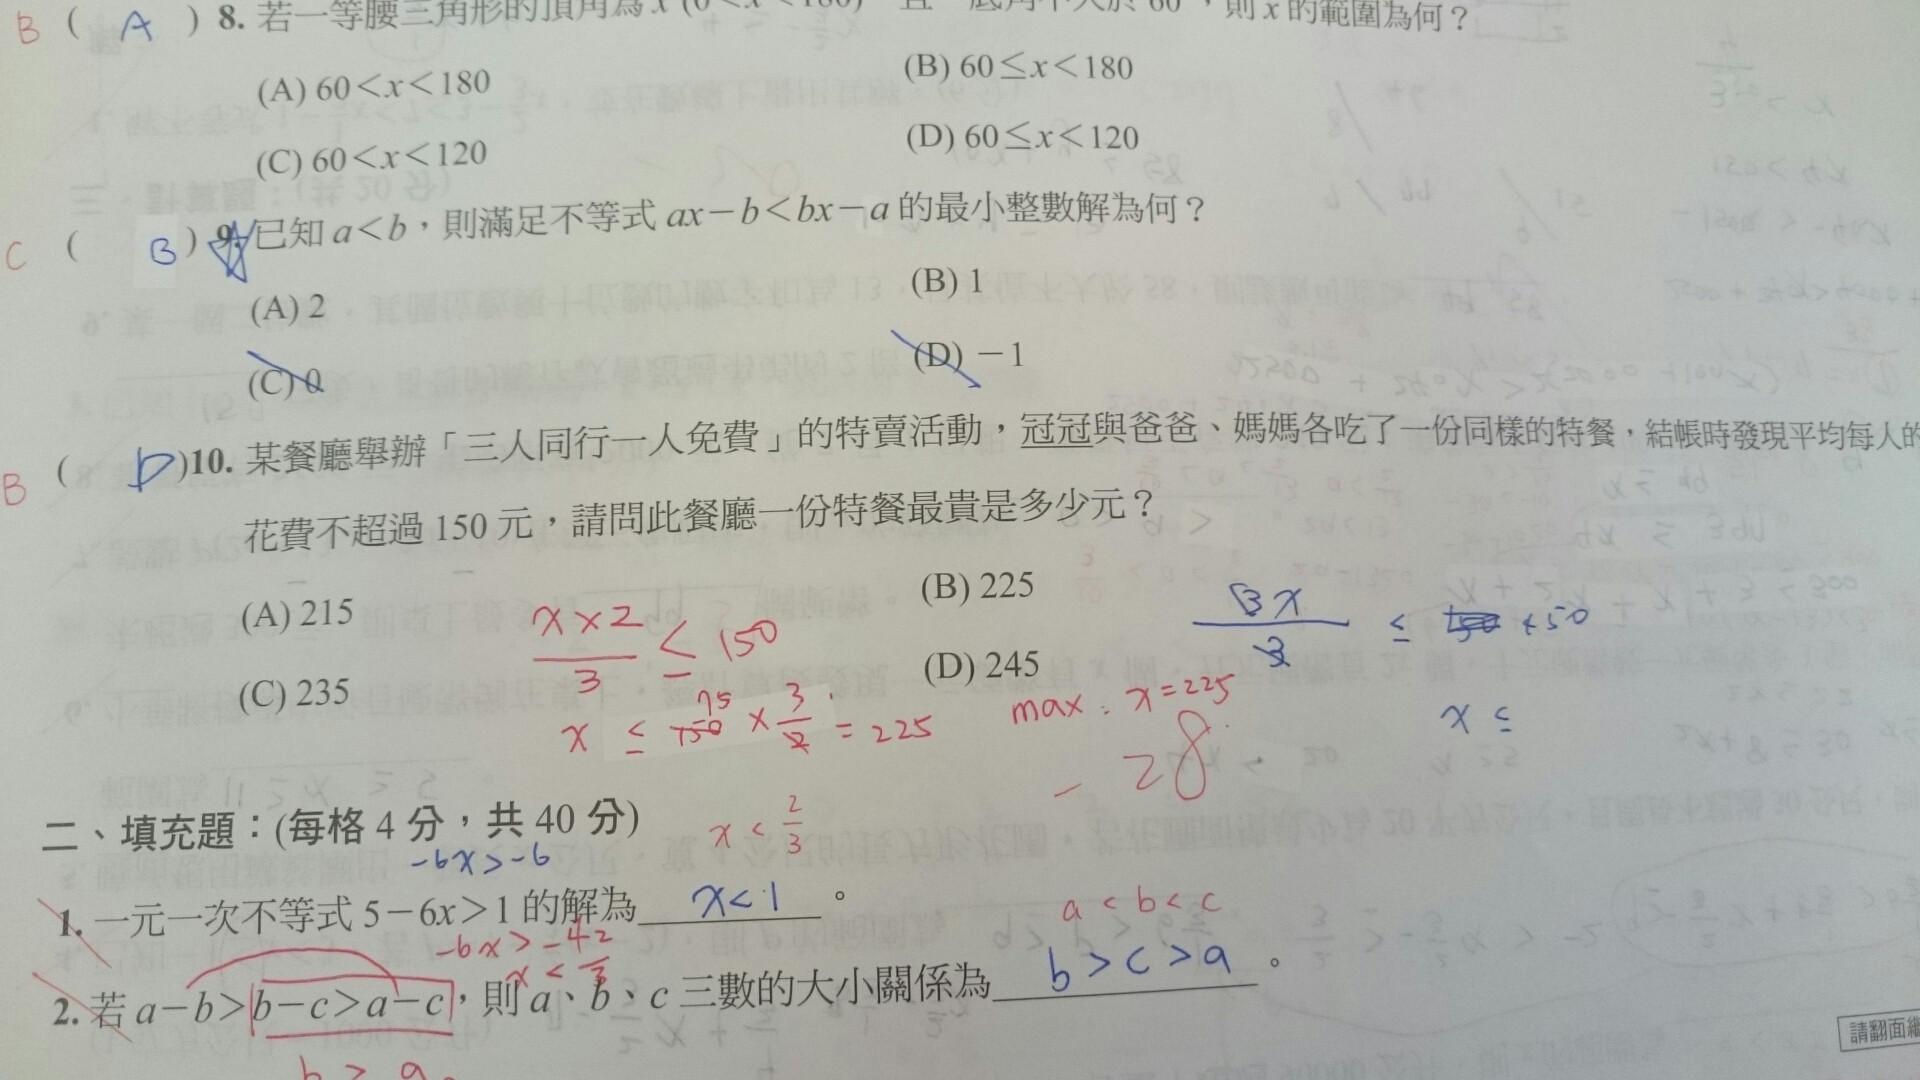 B ( A ) 8. 若一等腰三角形的頂角為 x (0<x<180)，且一底角不大於 60，則 x 的範圍為何？
(A) 60<x<180 (B) 60≤x<180
(C) 60<x<120 (D) 60≤x<120
C ( B ) 9. 已知 a<b，則滿足不等式 ax－b<bx－a 的最小整數解為何？
(A) 2 (B) 1
(C) 0 (D) －1
B ( D )10. 某餐廳舉辦「三人同行一人免費」的特賣活動，冠冠與爸爸、媽媽各吃了一份同樣的特餐，結帳時發現平均每人的
花費不超過 150 元，請問此餐廳一份特餐最貴是多少元？
(A) 215 (B) 225
(C) 235 (D) 245
x×2/3 ≤ 150
x ≤ 150 × 3/2 = 225
75
max : x=225
3x/3 ≤ 150
x ≤
－28
二、填充題：(每格 4 分，共 40 分)
x < 2/3
-6x>-6
1. 一元一次不等式 5－6x>1 的解為 x<1 。
-6x>-4
x < 2/3
a < b < c
2. 若 a－b>b－c>a－c，則 a、b、c 三數的大小關係為 b>c>a 。
b > a
請翻面繼